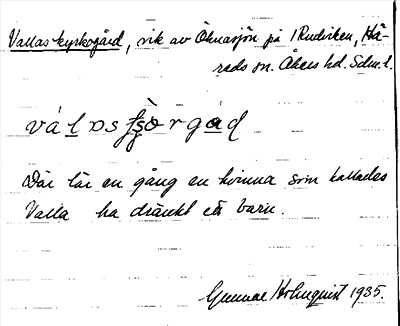 Vallas kyrkogård, vik av Öknasjön på Rudviken, Hä-
rads sn. Åkers hd. Sdml.
Där lär en gång en kvinna som kallades
Valla ha dränkt ett barn.
Gunnar Holmquist 1935.